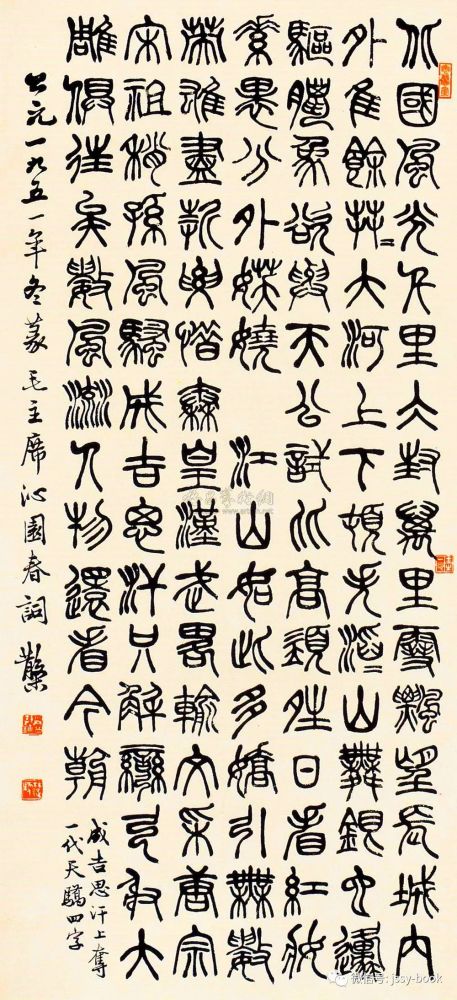 北國風光千里仌封萬里雪飄望長城內
外隹餘茻〻大河上下頓失滔〻山舞銀它邍
驅臘象欲與天公試比高須晴日看紅妝
素裹分外媄嬈 江山如此多嬌引無數
英雄盡折要惜秦皇漢武略輸文采唐宗
宋祖稍孫風騷成吉思汗只解彎弓射大
雕俱往矣數風流人物還看今朝
成吉思汗上奪
一代天驕四字
公元一九五一年冬篆毛主席沁園春詞
微信号: jssy-book